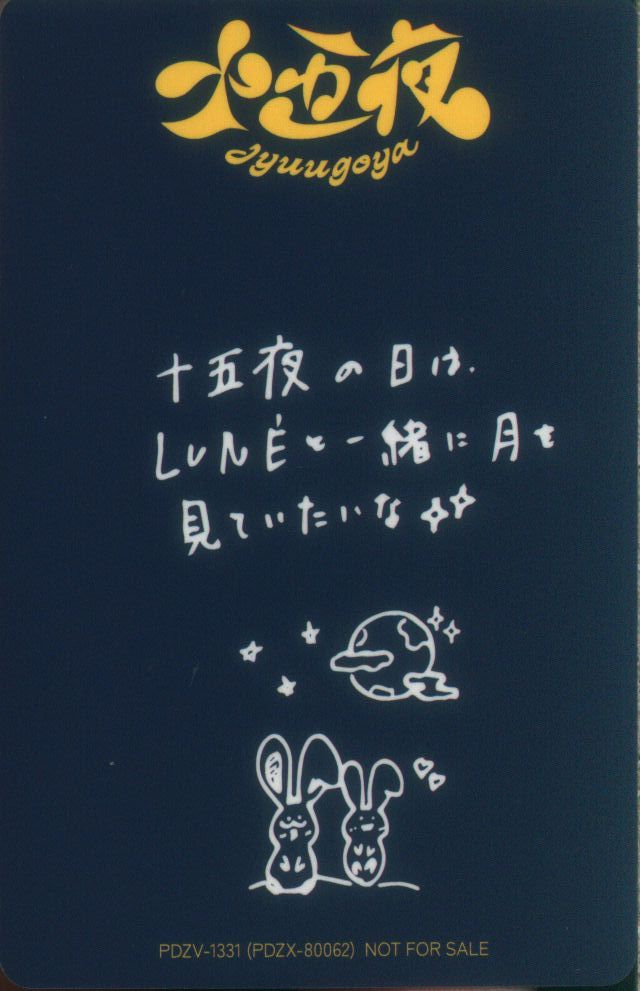 十五夜
Jyuugoya
十五夜の日は、
LUNÉと一緒に月を
見ていたいな
PDZV-1331 (PDZX-80062) NOT FOR SALE